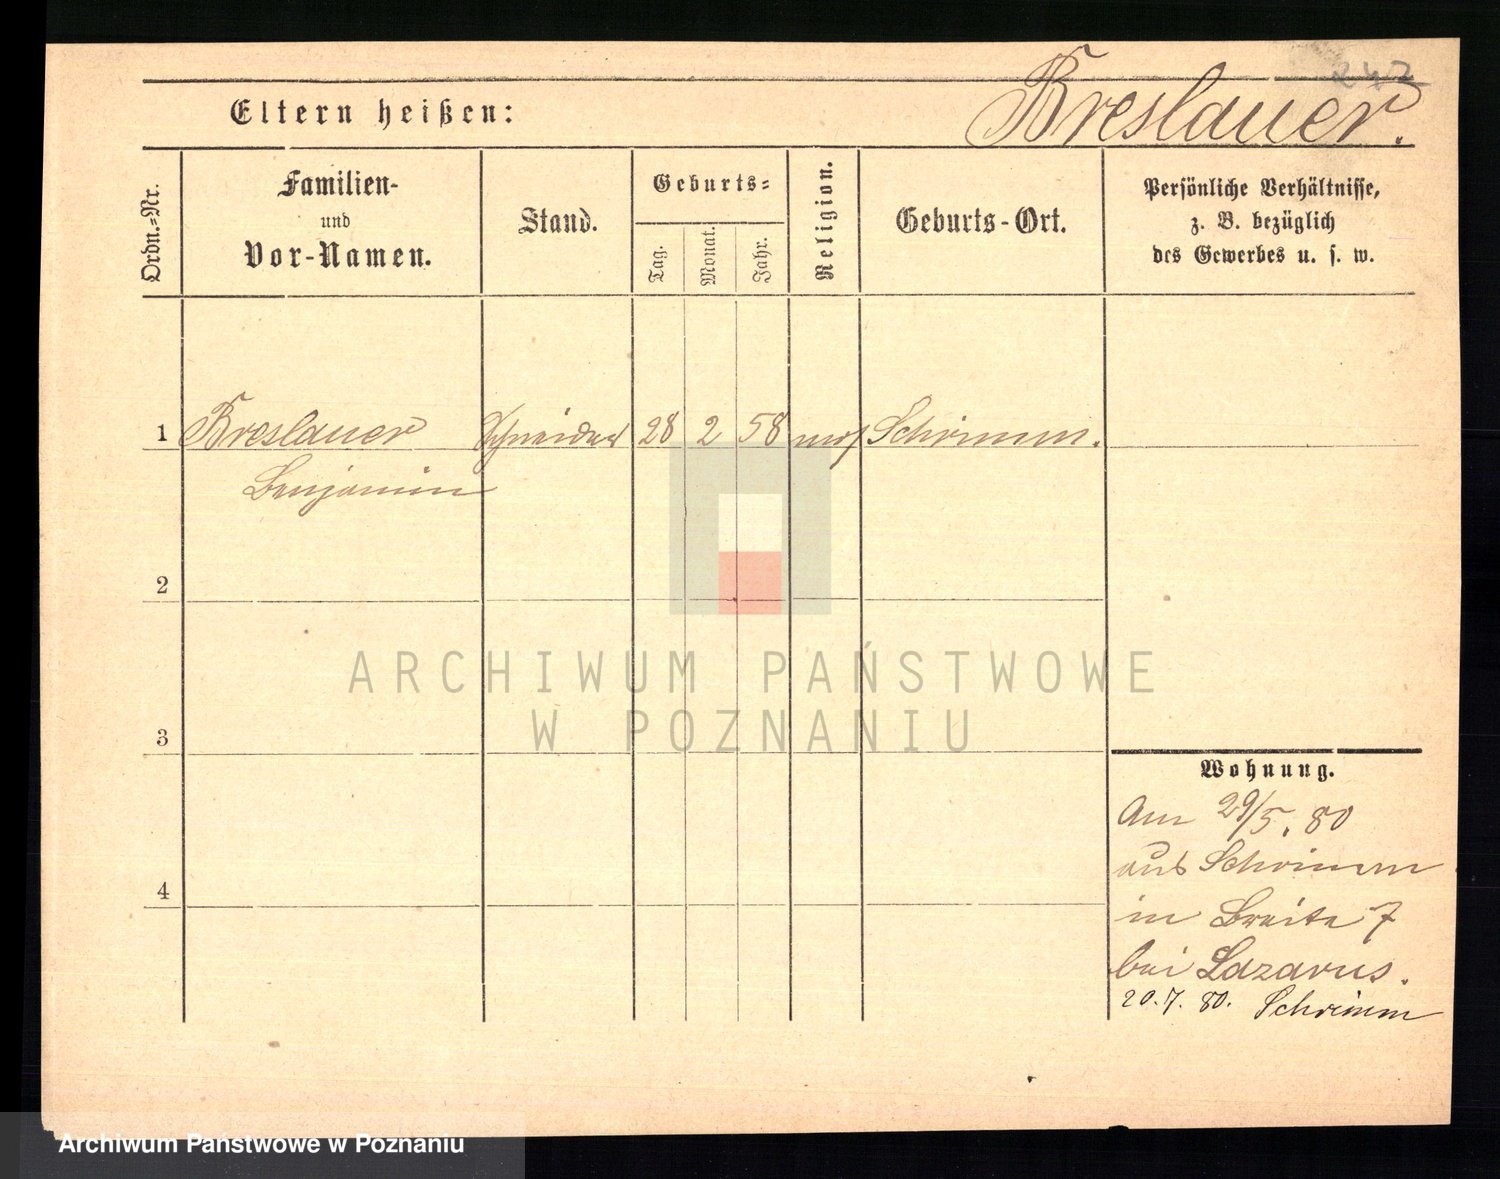 242
Breslauer.
Eltern heißen:
Ordn.-Nr.
Familien-
und
Vor-Namen.
Stand.
Geburts-
Tag.
Monat.
Jahr.
Religion.
Geburts-Ort.
Persönliche Verhältnisse,
z. B. bezüglich
des Gewerbes u. s. w.
1 Breslauer Schneider 28 2 58 mos Schrimm.
Benjamin
2
3
4
Wohnung.
Am 29/5. 80
aus Schrimm
in Breite 7
bei Lazarus.
20.7.80. Schrimm
ARCHIWUM PAŃSTWOWE
W POZNANIU
Archiwum Państwowe w Poznaniu